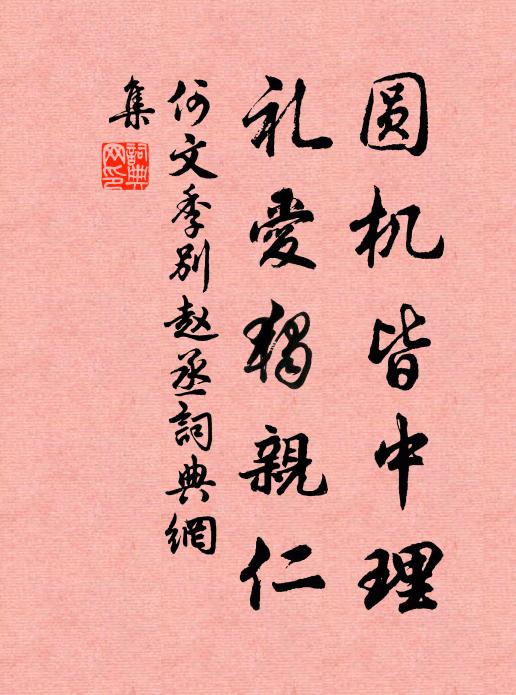 圆机皆中理
礼爱独親仁
何文季别赵丞詞典網
集
詞典
网印